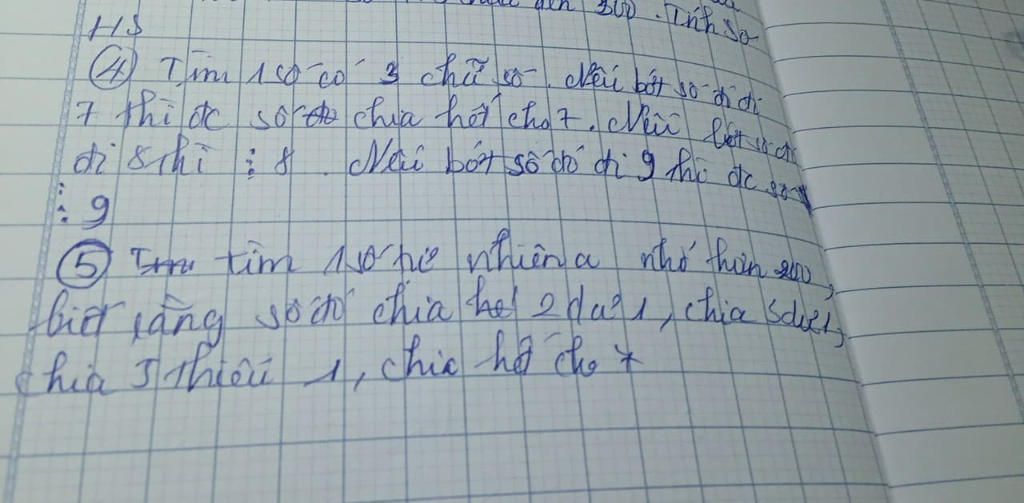 đến 300. Tính số
HS
④ Tìm 1 số có 3 chữ số. Nếu bớt số đó đi
7 thì đc số chia hết cho 7. Nếu bớt số đó
đi 8 thì ⋮ 8. Nếu bớt số đó đi 9 thì đc số
⋮ 9
⑤ tìm 1 số tự nhiên a nhỏ hơn 200,
biết rằng số đó chia 2 dư 1, chia 5 dư 1,
chia 3 thiếu 1, chia hết cho 7